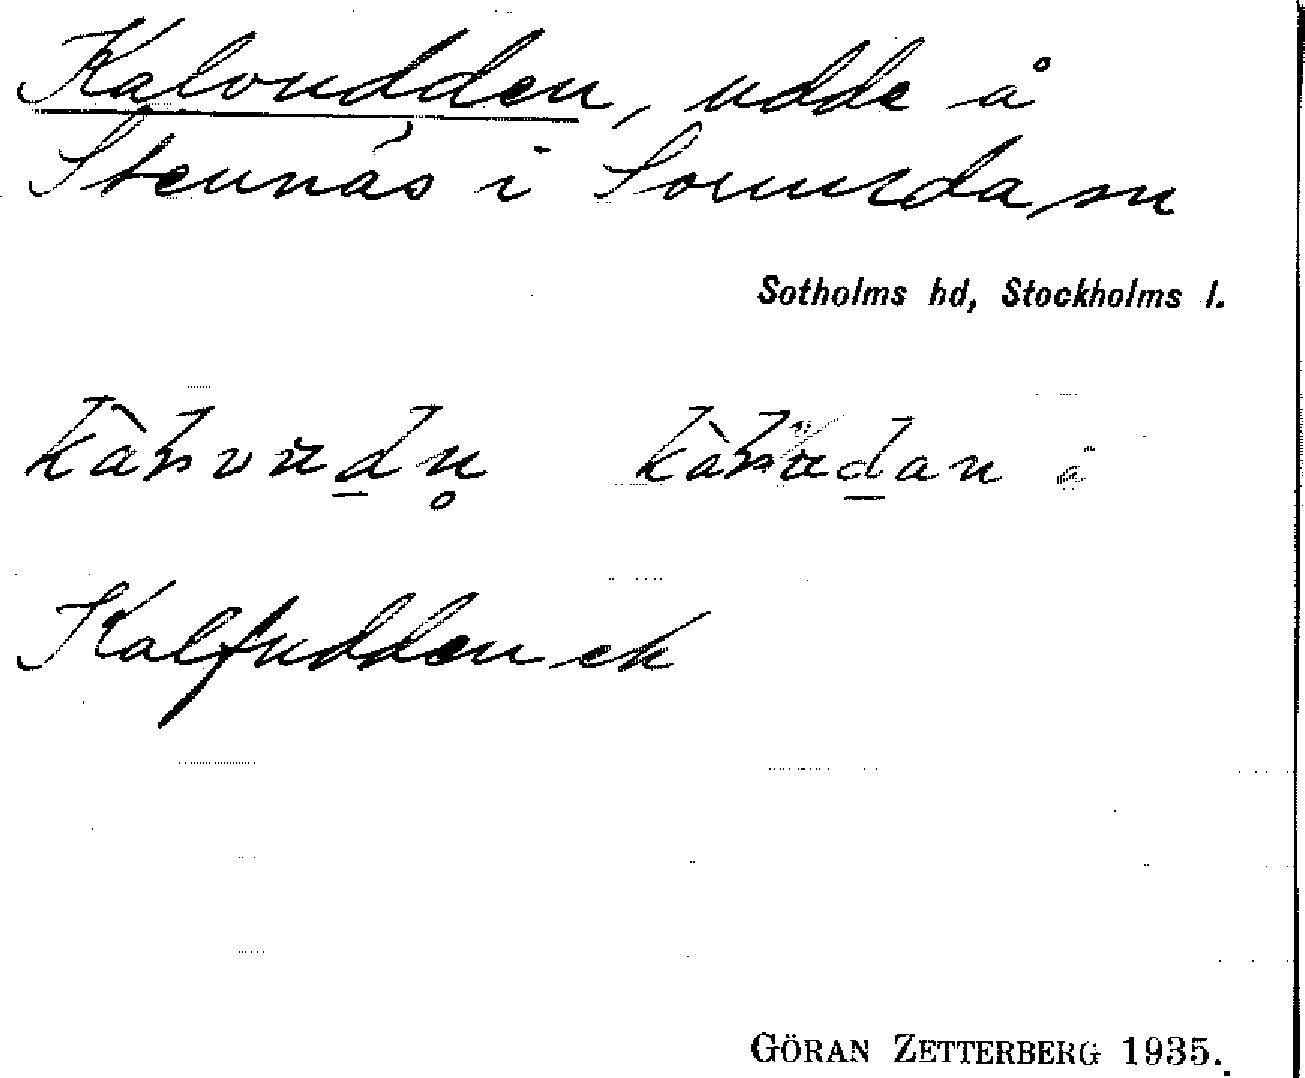 Kalvudden, udde å
Stennäs i Sorunda sn
Sotholms hd, Stockholms l.
Kalfudden ek
GÖRAN ZETTERBERG 1935.